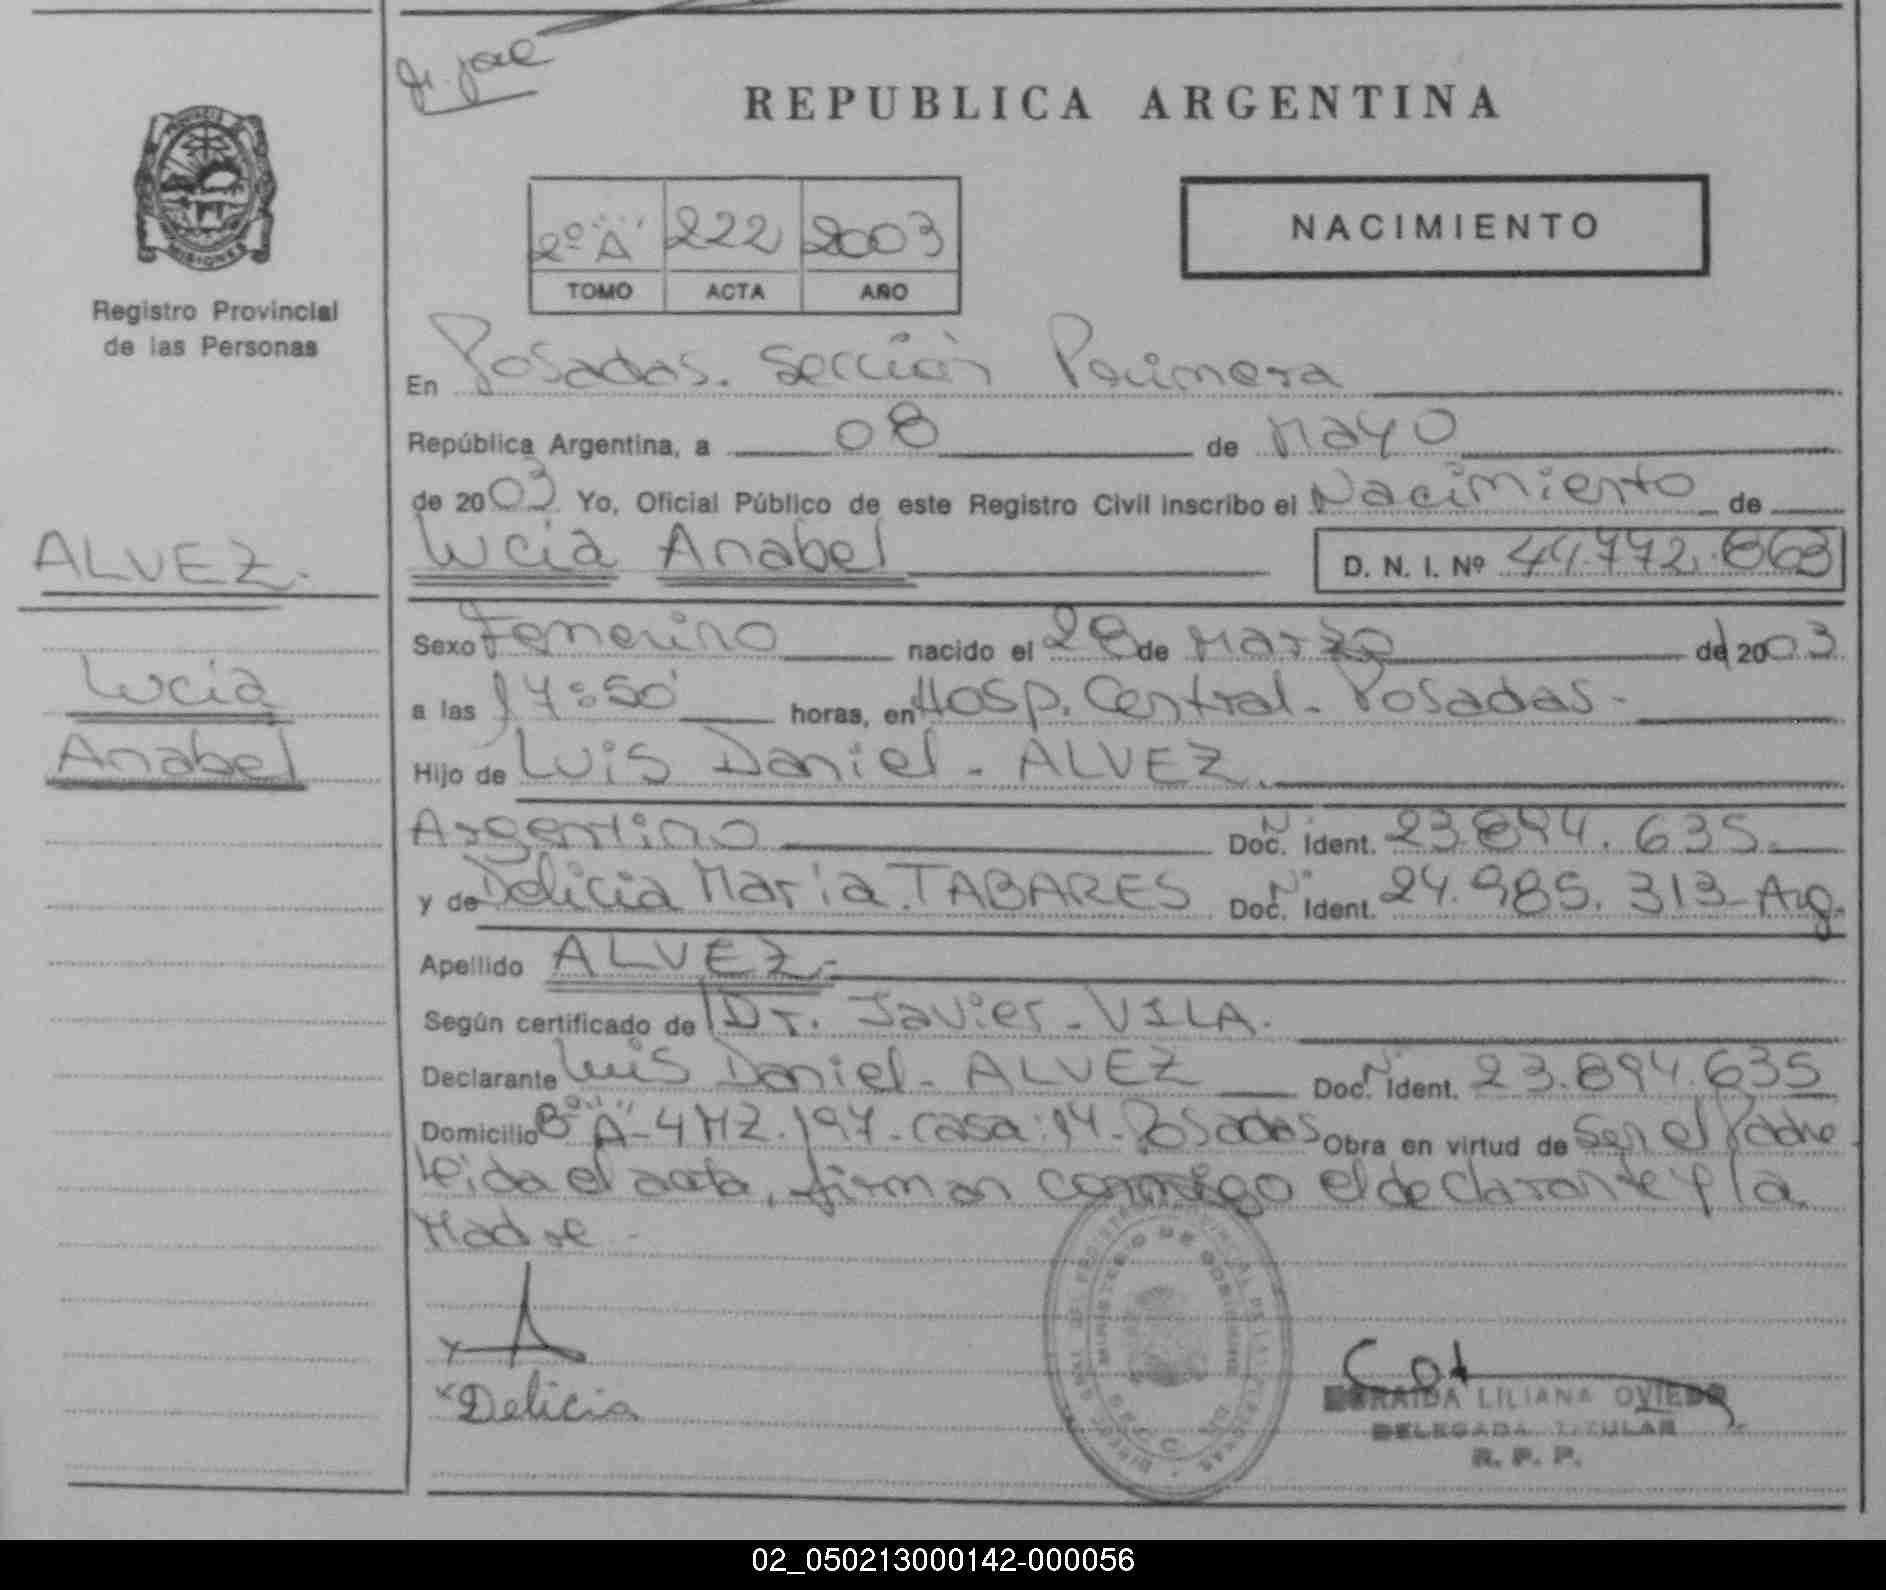 REPUBLICA ARGENTINA
PROVINCIA DE
MISIONES
Registro Provincial
de las Personas
2º "A" 222 2003
TOMO ACTA AÑO
NACIMIENTO
En Posadas. Sección Primera
República Argentina, a 08 de Mayo
de 2003. Yo, Oficial Público de este Registro Civil inscribo el Nacimiento de
ALVEZ.
Lucia Anabel D. N. I. Nº 44.772.663
Sexo Femenino nacido el 28 de Marzo de 2003
Lucia
a las 17:50' horas, en Hosp. Central - Posadas -
Anabel
Hijo de Luis Daniel - ALVEZ.
Argentino Doc. Nº Ident. 23.894.635.
y de Delicia Maria. TABARES Doc. Nº Ident. 24.985.313 - Arg.
Apellido ALVEZ.-
Según certificado de Dr. Javier - VILA.
Declarante Luis Daniel - ALVEZ Doc. Nº Ident. 23.894.635
Domicilio Bº "A"-4 MZ. 197 - casa: 14 - Posadas Obra en virtud de Ser el Padre
leida el acta, firman conmigo el declarante y la
Madre -
x Delicia
LILIANA OVIEDO
DELEGADA TITULAR
R. P. P.
02_050213000142-000056